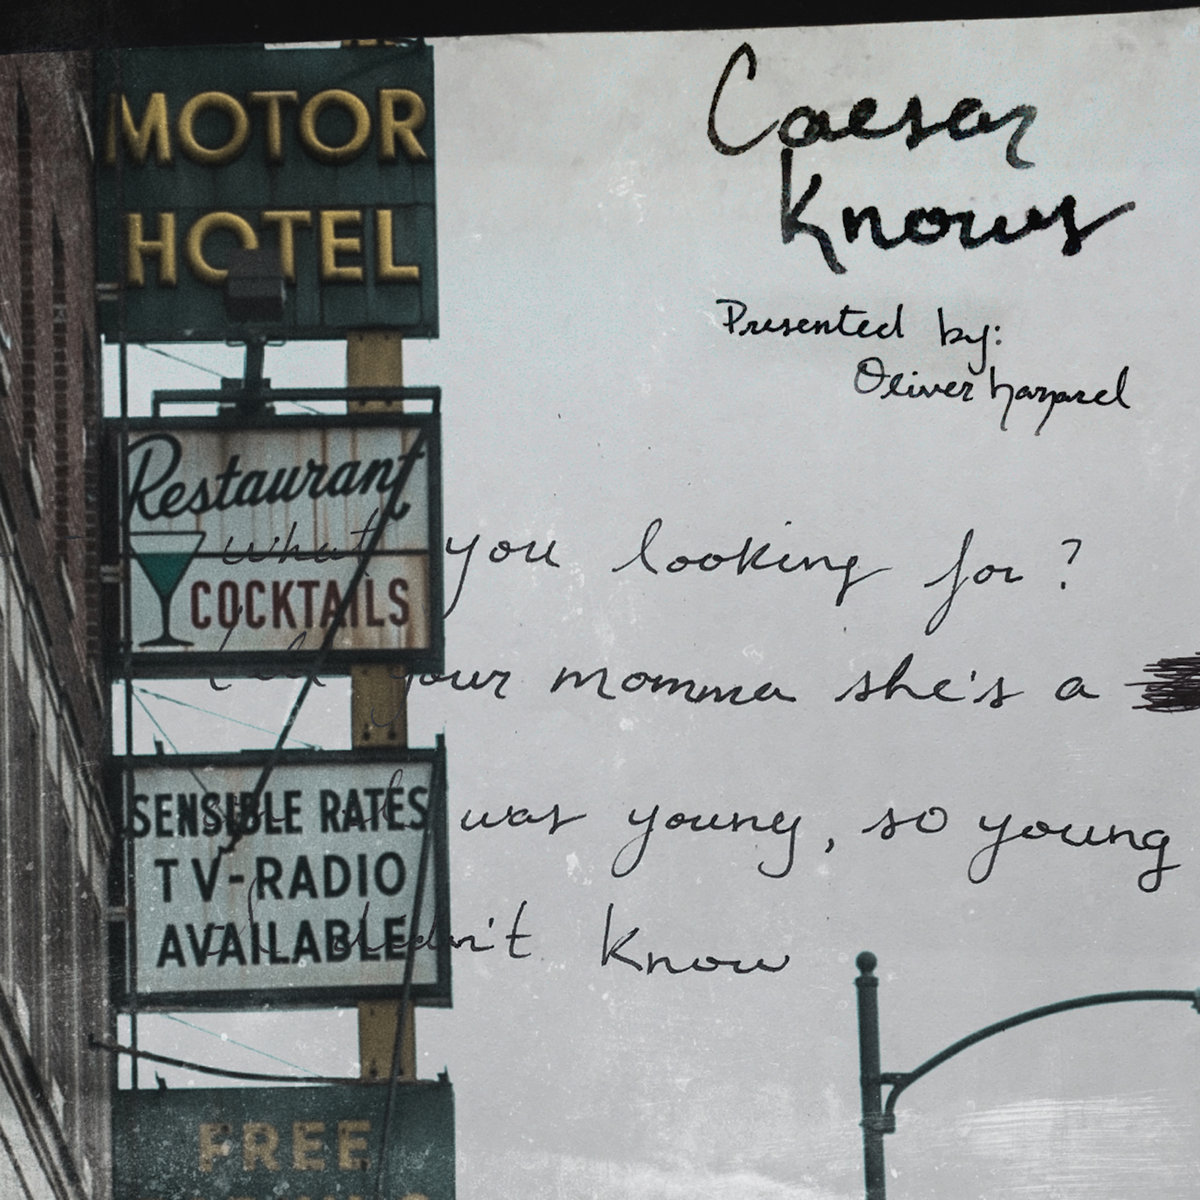 MOTOR
HOTEL
Restaurant
COCKTAILS
SENSIBLE RATES
TV-RADIO
AVAILABLE
FREE
Caesar
Knows
Presented by:
Oliver Hazard
What you looking for?
your momma she's a
was young, so young
didn't know